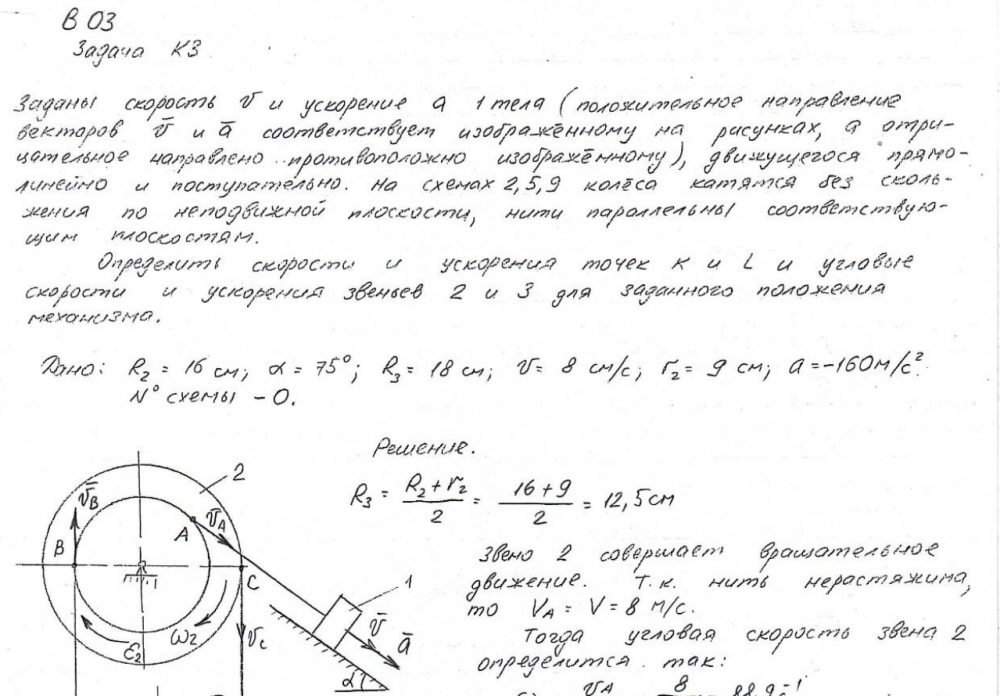 В 03
Задача К3.
Заданы скорость v и ускорение a 1 тела (положительное направление
векторов v̄ и ā соответствует изображённому на рисунках, а отри-
цательное направлено противоположно изображённому), движущегося прямо-
линейно и поступательно. На схемах 2,5,9 колёса катятся без сколь-
жения по неподвижной плоскости, нити параллельны соответствую-
щим плоскостям.
Определить скорости и ускорения точек К и L и угловые
скорости и ускорения звеньев 2 и 3 для заданного положения
механизма.
Дано: R₂ = 16 см; α = 75°; R₃ = 18 см; v = 8 см/с; r₂ = 9 см; a = -160 м/с².
N° схемы - 0.
Решение.
R₃ = (R₂ + r₂)/2 = (16 + 9)/2 = 12,5 см
Звено 2 совершает вращательное
движение. Т.к. нить нерастяжима,
то V_A = V = 8 м/с.
Тогда угловая скорость звена 2
определится так:
v_A 8 = 88,9 с⁻¹
2
v̄_B
A
v̄_A
B
C
1
ω₂
v̄_C
v̄
ā
ε₂
α